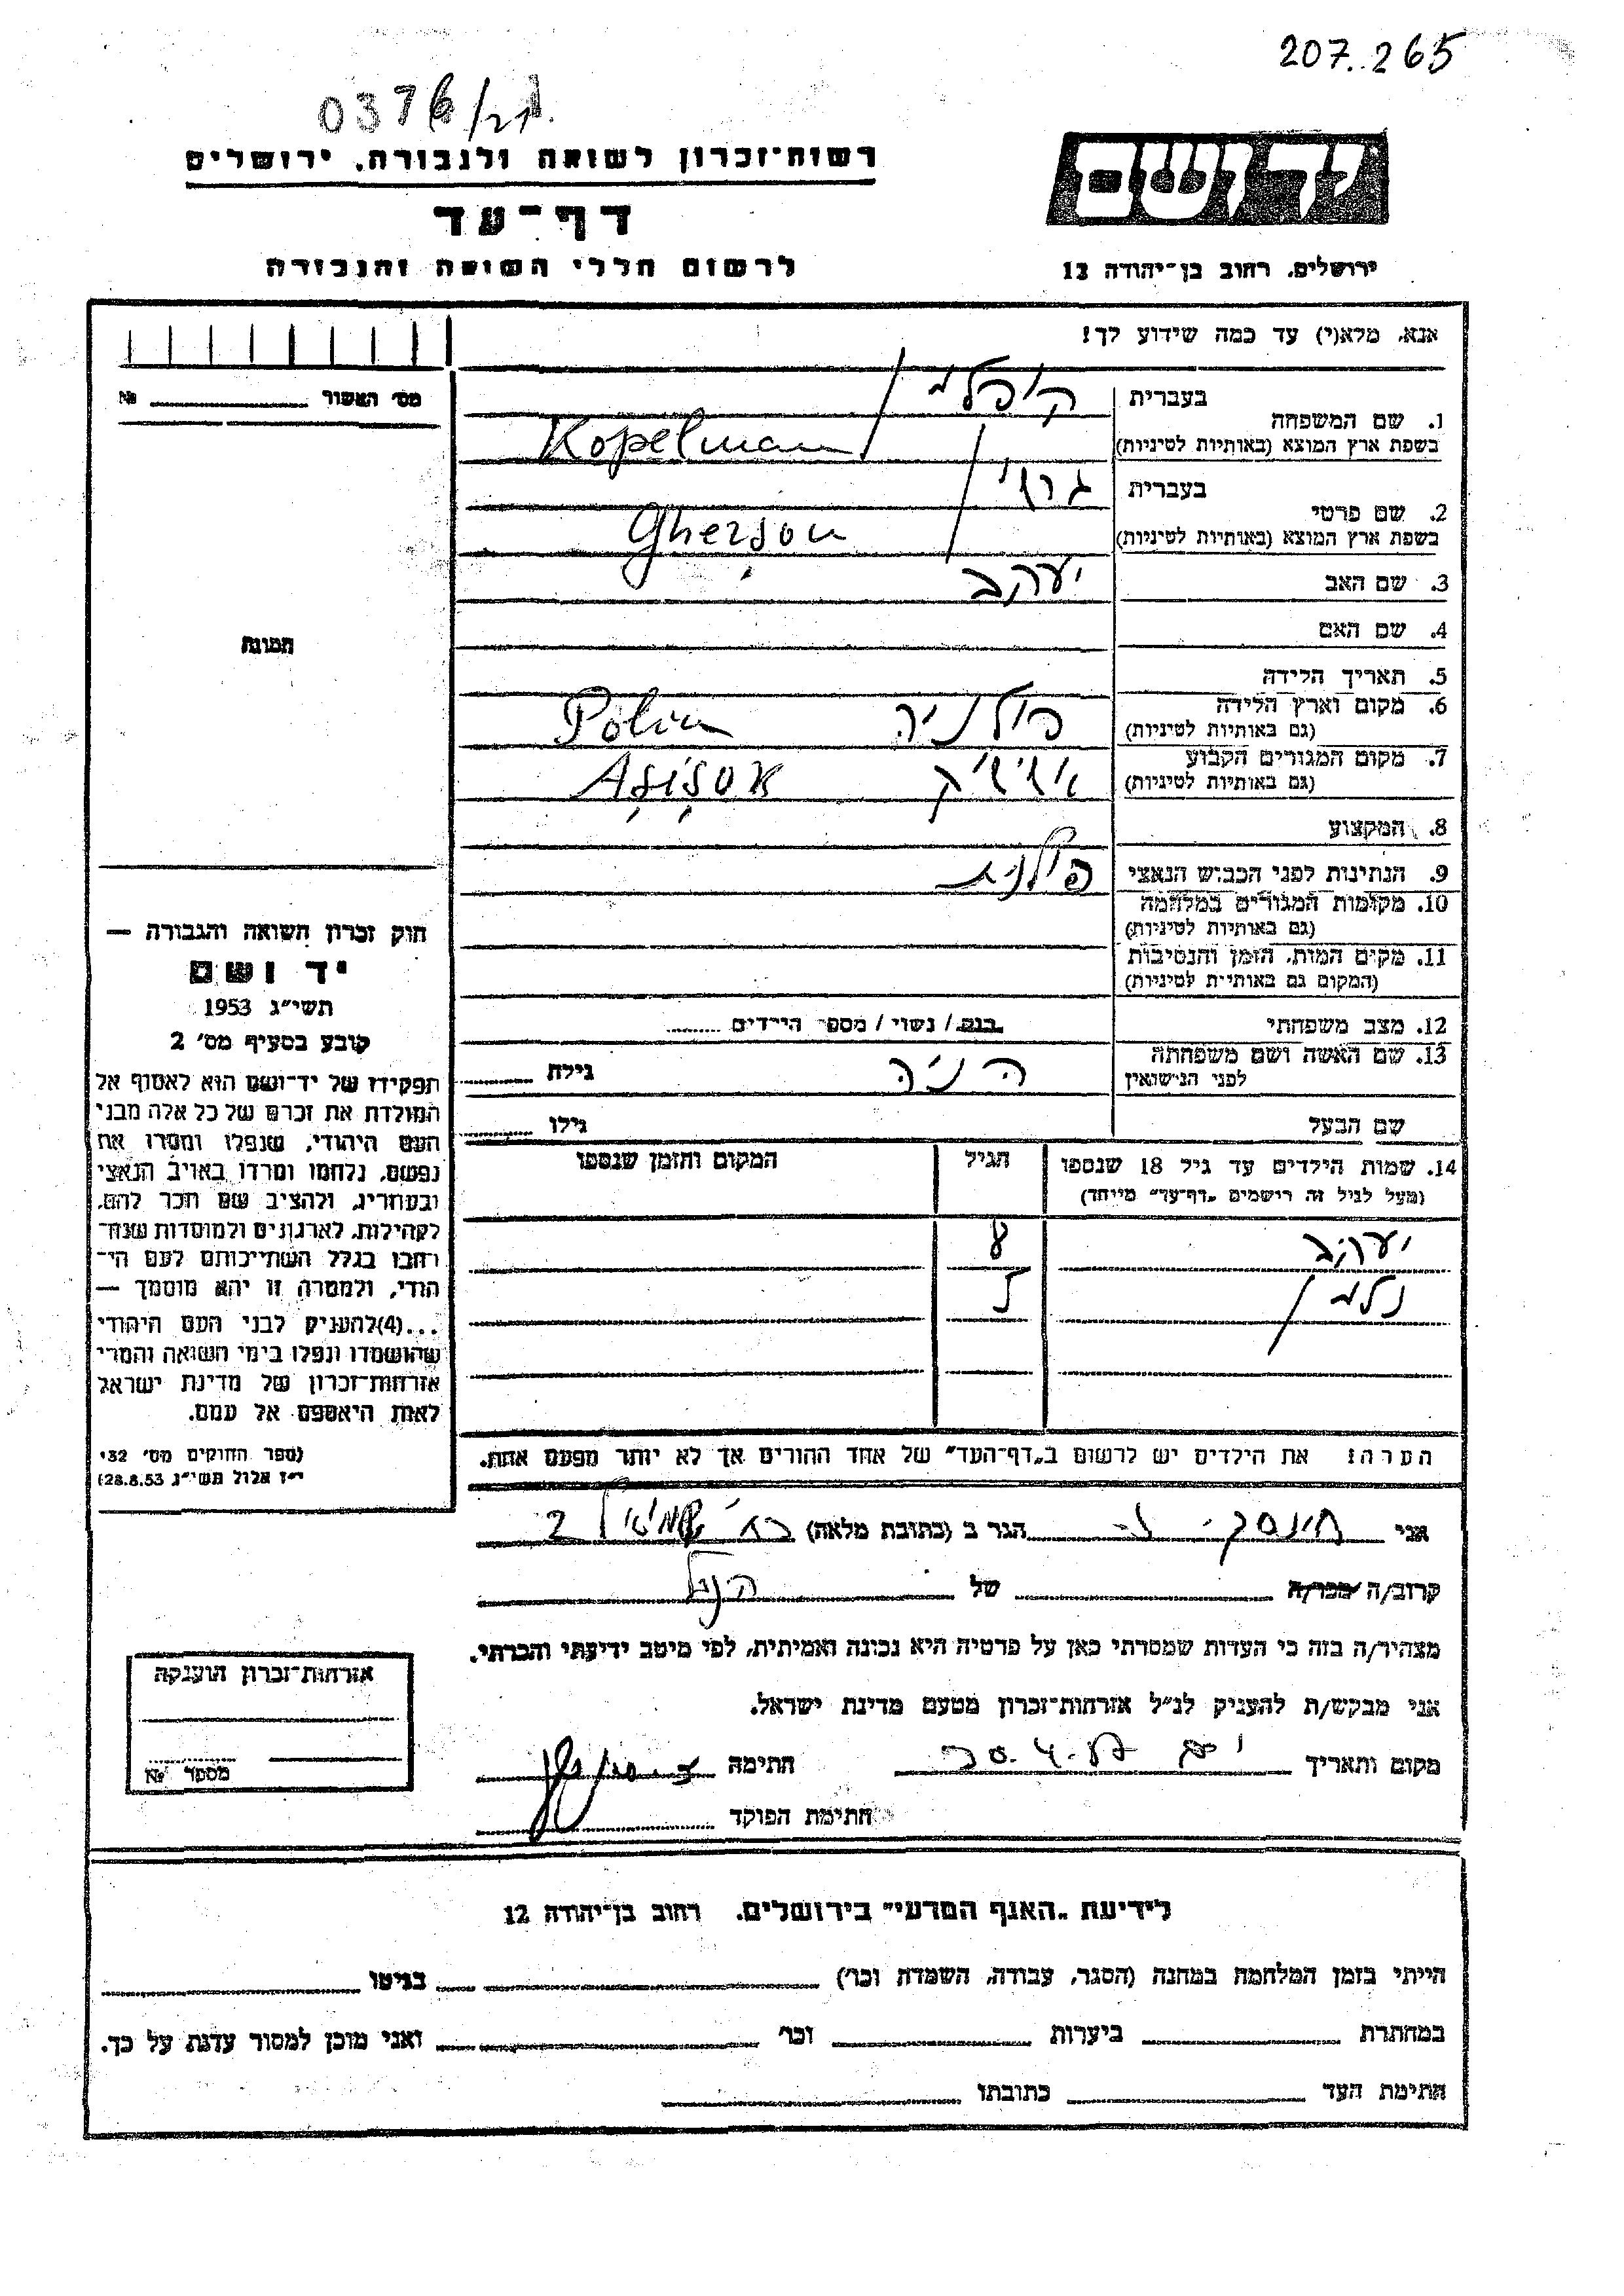 207.265
0376/21
יד ושם
רשות־זכרון לשואה ולגבורה. ירושלים
דף־עד
לרשום חללי השואה והגבורה
ירושלים, רחוב בן־יהודה 12
אנא, מלא(י) עד כמה שידוע לך!
מס׳ האשור № 
1. שם המשפחה בעברית קופלמן
בשפת ארץ המוצא (באותיות לטיניות) Kopelman
2. שם פרטי בעברית גרשון
בשפת ארץ המוצא (באותיות לטיניות) Gherşon
3. שם האב יעקב
4. שם האם
תמונה
5. תאריך הלידה
6. מקום וארץ הלידה פולניה Polin
(גם באותיות לטיניות)
7. מקום המגורים הקבוע אשישוק Aşişok
(גם באותיות לטיניות)
8. המקצוע
9. הנתינות לפני הכבוש הנאצי פולנית
10. מקומות המגורים במלחמה
(גם באותיות לטיניות)
11. מקום המות, הזמן והנסיבות
(המקום גם באותיות לטיניות)
12. מצב משפחתי רווק / נשוי / מספר הילדים
13. שם האשה ושם משפחתה
לפני הנישואין הניה גילה
שם הבעל גילו
חוק זכרון השואה והגבורה —
יד ושם
תשי״ג 1953
קובע בסעיף מס׳ 2
תפקידו של יד־ושם הוא לאסוף אל
המולדת את זכרם של כל אלה מבני
העם היהודי, שנפלו ומסרו את
נפשם, נלחמו ומרדו באויב הנאצי
ובעוזריו, ולהציב שם וזכר להם,
לקהילות, לארגונים ולמוסדות שנח־
רבו בגלל השתייכותם לעם הי־
הודי, ולמטרה זו יהא מוסמך —
...(4)להעניק לבני העם היהודי
שהושמדו ונפלו בימי השואה והמרי
אזרחות־זכרון של מדינת ישראל
לאות היאספם אל עמם.
(ספר החוקים מס׳ 132
י״ז אלול תשי״ג 28.8.53)
14. שמות הילדים עד גיל 18 שנספו הגיל המקום והזמן שנספו
(מעל לגיל זה רישמים „דף־עד״ מיוחד)
יעקב
זלמן
הערה: את הילדים יש לרשום ב„דף־העד״ של אחד ההורים אך לא יותר מפעם אחת.
אני הגר ב (כתובת מלאה) 2
קרוב/ה מכר/ה של הנ״ל
מצהיר/ה בזה כי העדות שמסרתי כאן על פרטיה היא נכונה ואמיתית, לפי מיטב ידיעתי והכרתי.
אני מבקש/ת להעניק לנ״ל אזרחות־זכרון מטעם מדינת ישראל.
מקום ותאריך 20.4 חתימה
חתימת הפוקד
אזרחות־זכרון הוענקה
מספר №
לידיעת „האגף המדעי״ בירושלים. רחוב בן־יהודה 12
הייתי בזמן המלחמה במחנה (הסגר, עבודה, השמדה וכר׳) בגיטו
במחתרת ביערות וכר׳ ואני מוכן למסור עדות על כך.
חתימת העד כתובתו